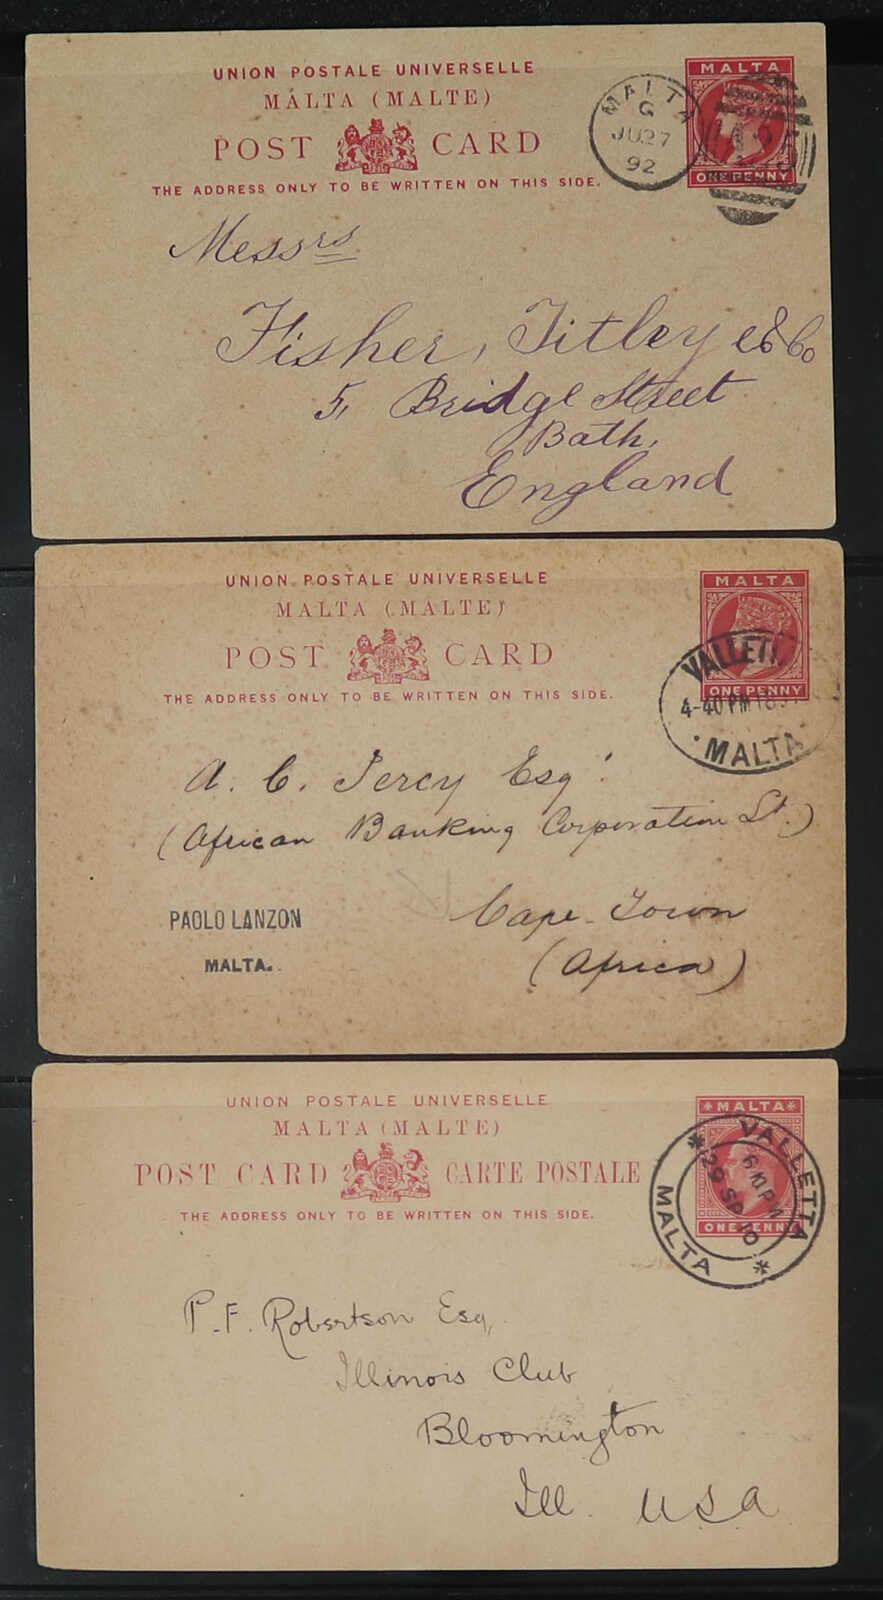 UNION POSTALE UNIVERSELLE
MALTA (MALTE)
POST CARD
THE ADDRESS ONLY TO BE WRITTEN ON THIS SIDE.
MALTA
ONE PENNY
MALTA
G
JU 27
92
Messrs
Fisher, Titley & Co
5, Bridge Street
Bath,
England
UNION POSTALE UNIVERSELLE
MALTA (MALTE)
POST CARD
THE ADDRESS ONLY TO BE WRITTEN ON THIS SIDE.
MALTA
ONE PENNY
4-40 PM
MALTA
A. C. Percy Esq.
(African Banking Corporation Ld.)
Cape Town
(Africa)
PAOLO LANZON
MALTA.
UNION POSTALE UNIVERSELLE
MALTA (MALTE)
POST CARD CARTE POSTALE
THE ADDRESS ONLY TO BE WRITTEN ON THIS SIDE.
*MALTA*
ONE PENNY
VALLETTA
29 SP 10
MALTA
P. F. Robertson Esq,
Illinois Club
Bloomington
Ill. USA